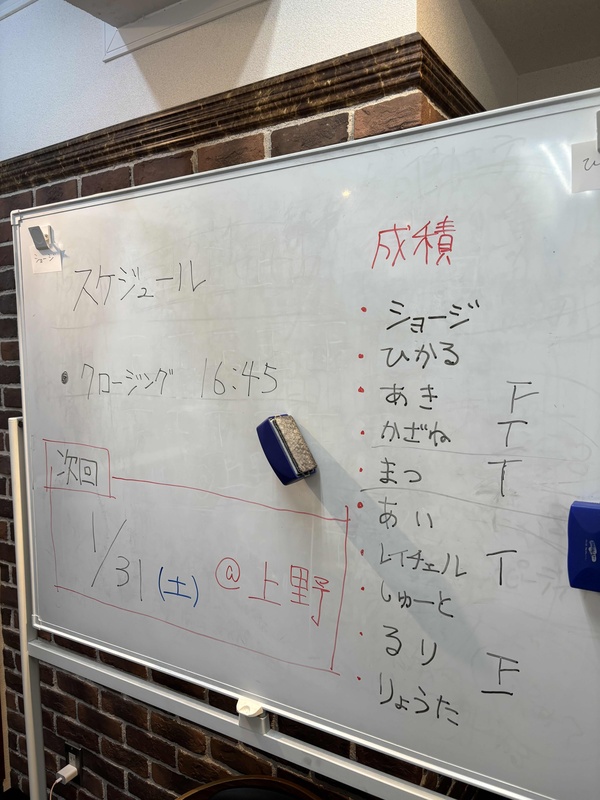 ショージ
スケジュール
• クロージング 16:45
次回
1/31 (土) @上野
成積
• ショージ
• ひかる
• あき F
• かざね T
• まつ T
• あい
• レイチェル T
• しゅーと
• るり F
• りょうた
ひ